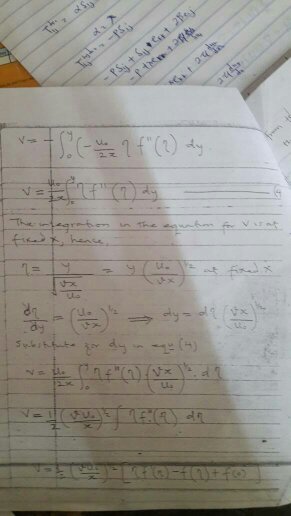 V = - ∫₀^y (- u₀/2x η f''(η) dy
V = u₀/2x ∫₀^y η f''(η) dy (4)
The integration in the equation for V is at
fixed x, hence,
η = y / √(νx/u₀) = y (u₀/νx)^1/2 at fixed x
dη/dy = (u₀/νx)^1/2 ⟹ dy = dη (νx/u₀)^1/2
Substitute for dy in equ (4)
V = u₀/2x ∫₀ η f''(η) (νx/u₀)^1/2 . dη
V = 1/2 (νu₀/x)^1/2 ∫ η f''(η) dη
V = 1/2 (νu₀/x)^1/2 [ η f'(η) - f(η) + f(0) ]